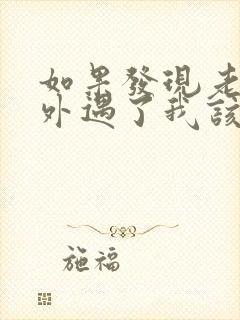 如果發現老
外遇了我該
施福